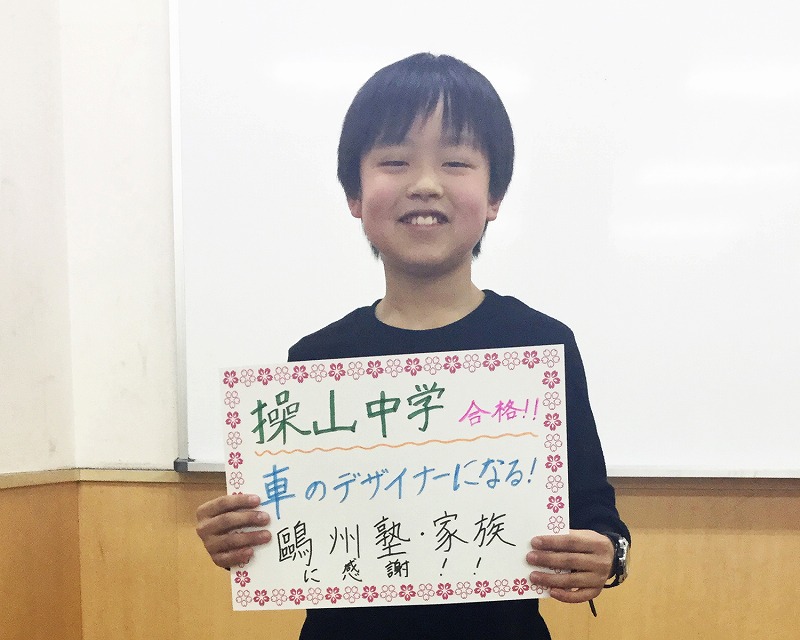 操山中学 合格!!
車のデザイナーになる!
鷗州塾・家族
に感謝!!